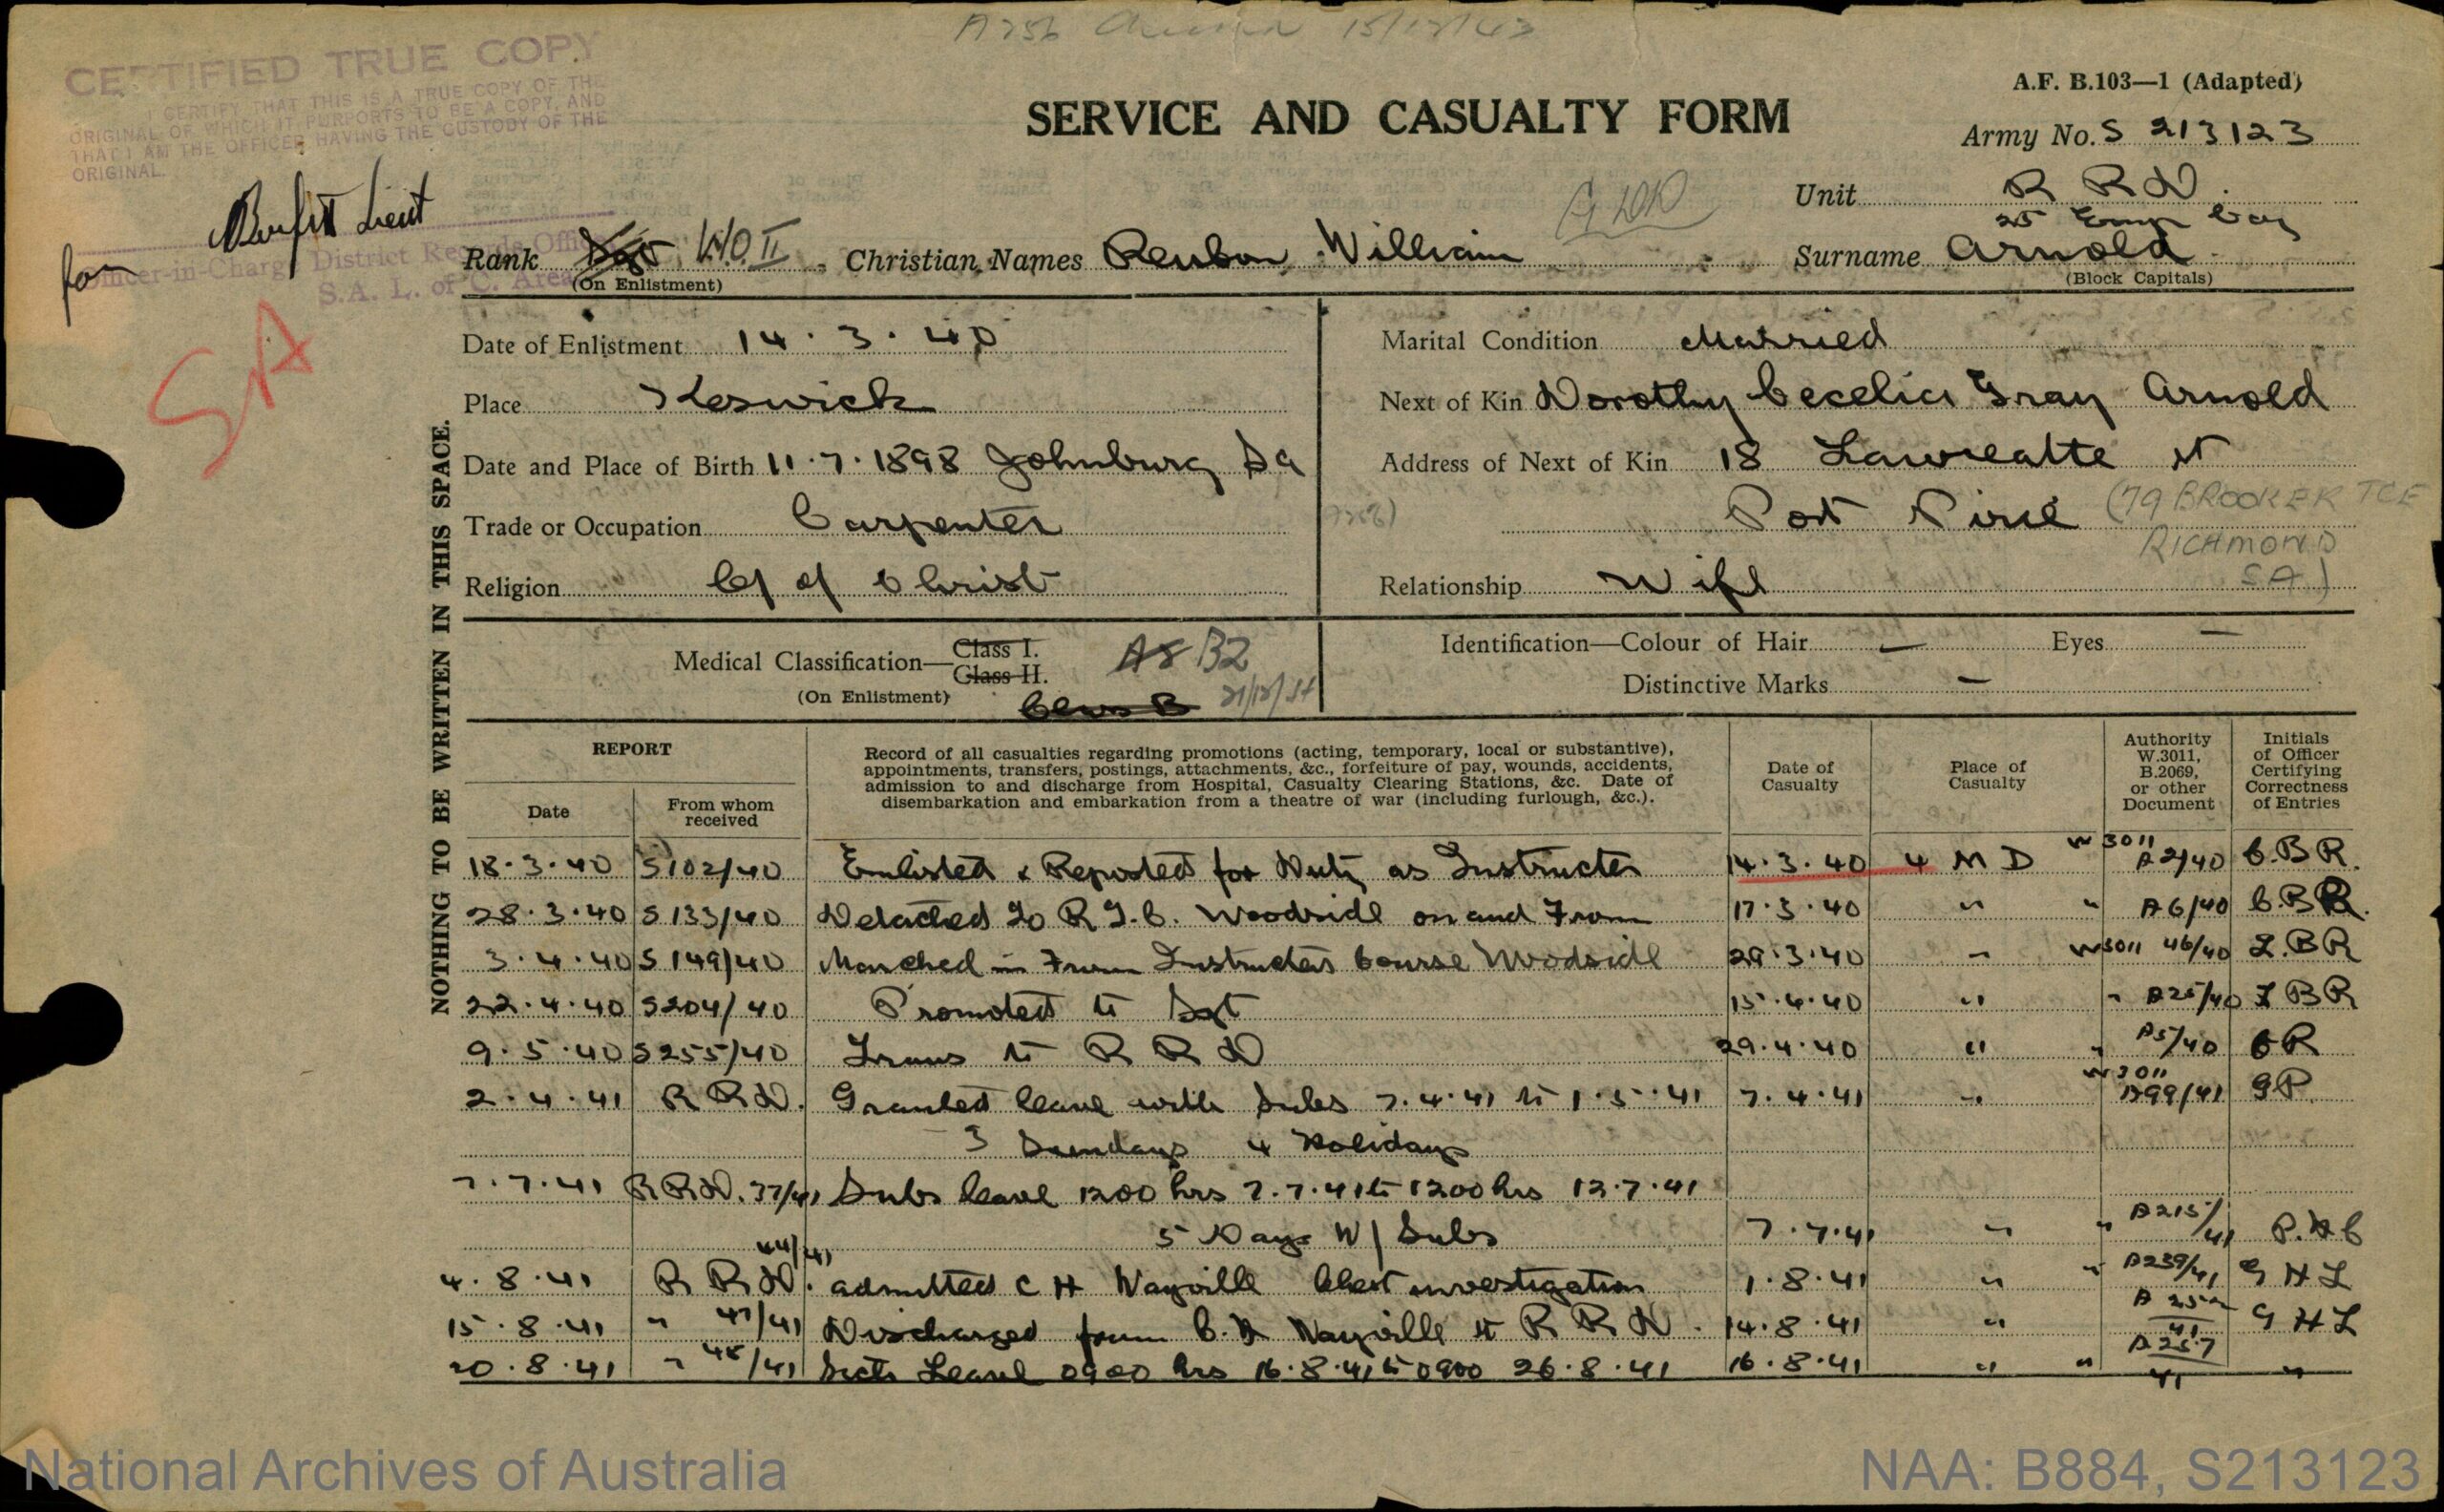 A256 15/12/43
CERTIFIED TRUE COPY
I CERTIFY THAT THIS IS A TRUE COPY OF THE
ORIGINAL OF WHICH IT PURPORTS TO BE A COPY, AND
THAT I AM THE OFFICER HAVING THE CUSTODY OF THE
ORIGINAL.
Lieut
for
Officer-in-Charge District Records Office
S.A. L. of C. Area
SA
A.F. B.103—1 (Adapted)
SERVICE AND CASUALTY FORM
Army No. S 213123
Unit R R D.
25 Emp Coy
Rank Sgt W.O.II Christian Names Reuben William Surname Arnold
(On Enlistment) (Block Capitals)
NOTHING TO BE WRITTEN IN THIS SPACE.
Date of Enlistment 14.3.40
Place Keswick
Date and Place of Birth 11.7.1898 Johnburg Sa
Trade or Occupation Carpenter
Religion C of Christ
Marital Condition Married
Next of Kin Dorothy Cecelia Gray Arnold
Address of Next of Kin 18 Lawreatte st
Port Pirie (79 BROOKER TCE
RICHMOND
SA)
Relationship Wife
Medical Classification—Class I.
Class II.
(On Enlistment)
A8 B2
Class B
Identification—Colour of Hair — Eyes —
Distinctive Marks —
REPORT
Date
From whom received
Record of all casualties regarding promotions (acting, temporary, local or substantive),
appointments, transfers, postings, attachments, &c., forfeiture of pay, wounds, accidents,
admission to and discharge from Hospital, Casualty Clearing Stations, &c. Date of
disembarkation and embarkation from a theatre of war (including furlough, &c.).
Date of Casualty
Place of Casualty
Authority W.3011, B.2069, or other Document
Initials of Officer Certifying Correctness of Entries
18.3.40 S102/40 Enlisted & Reported for Duty as Instructor 14.3.40 4 M D W3011 A2/40 C.B R.
28.3.40 S133/40 Detached to R T.C. Woodside on and From 17.3.40 " " A6/40 C.B R.
3.4.40 S149/40 Marched in From Instructors Course Woodside 29.3.40 " W3011 46/40 L.B R
22.4.40 S204/40 Promoted to Sgt 15.4.40 " " A25/40 L B R
9.5.40 S255/40 Trans to R R D 29.4.40 " " A5/40 C R
2.4.41 R R D. Granted leave with Subs 7.4.41 to 1.5.41 7.4.41 " W3011 A99/41 G P.
3 Sundays 4 Holidays
7.7.41 R R D. 37/41 Subs leave 1200 hrs 7.7.41 to 1200 hrs 12.7.41
5 Days W/ Subs 7.7.41 " " A215/41 P.H C
4.8.41 R R D. 44/41 admitted C H Wayville Chest investigation 1.8.41 " " A239/41 G H L
15.8.41 " 47/41 Discharged from C.H Wayville to R R D. 14.8.41 " G H L
20.8.41 " 48/41 Leave 0900 hrs 16.8.41 to 0900 26.8.41 16.8.41 " " A257/41 "
National Archives of Australia
NAA: B884, S213123